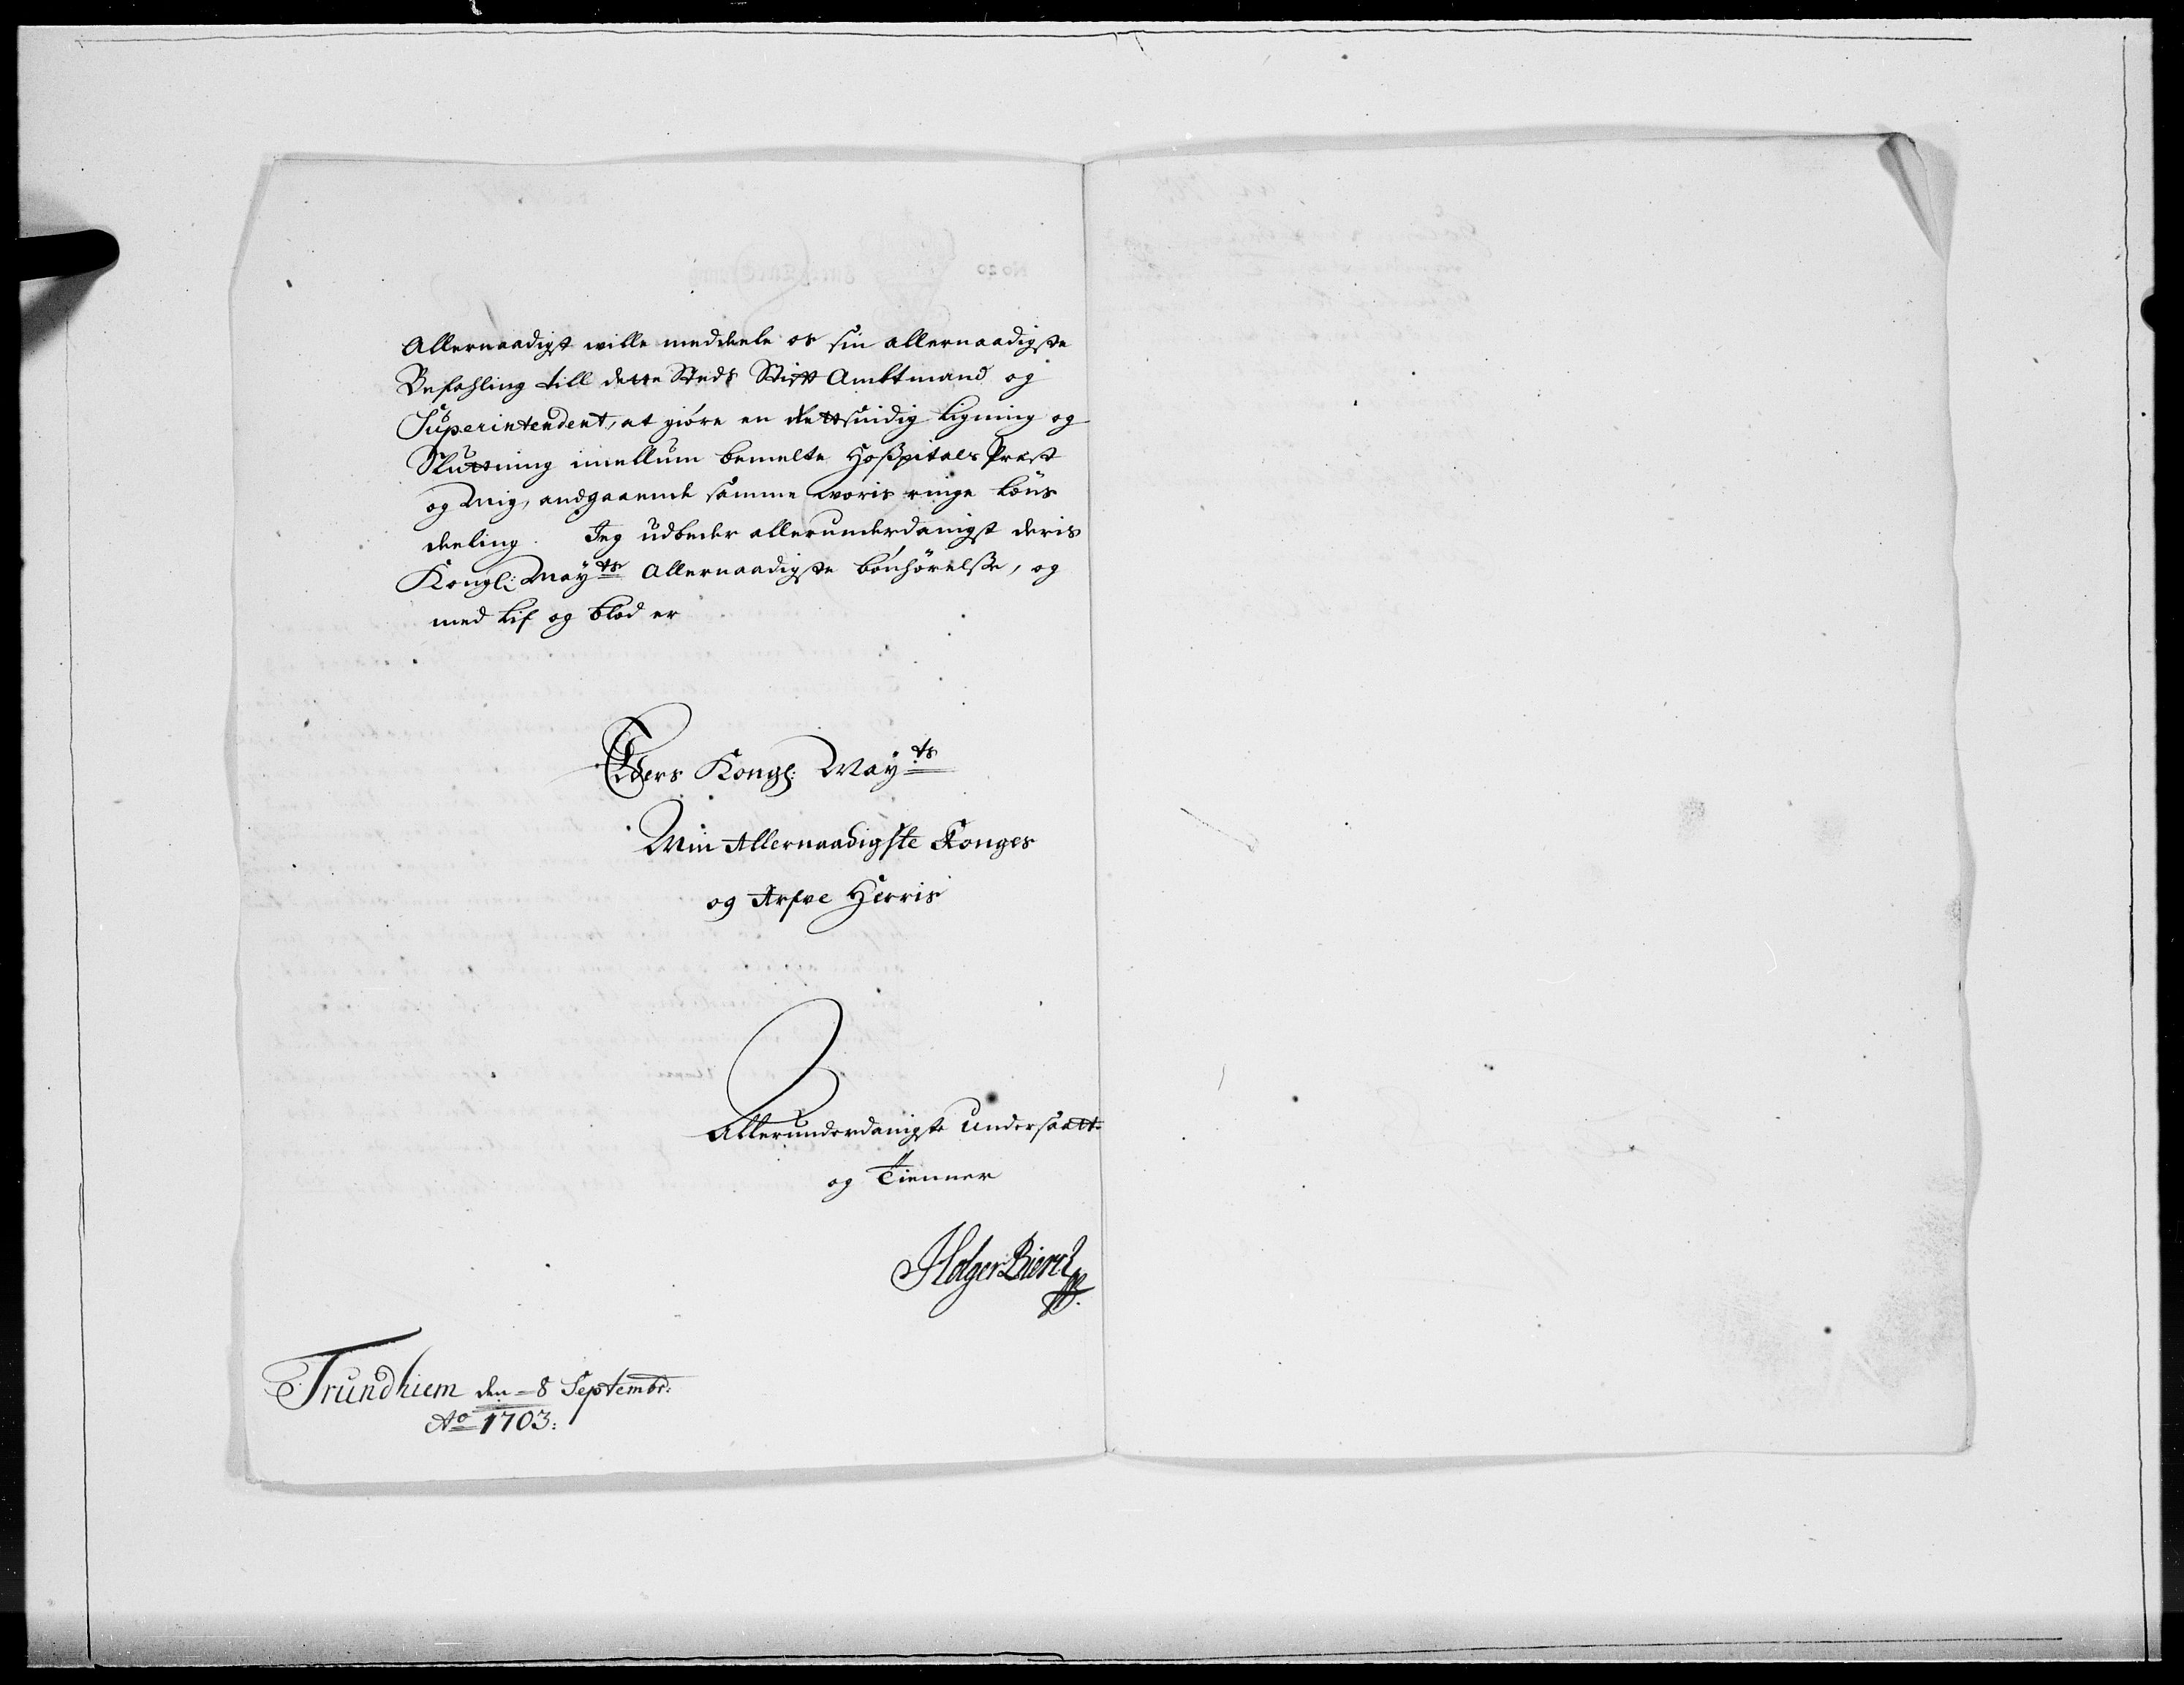 Allernaadigst wille meddeele os sin allernaadigste
Befahling till dette Steds Stifft Ambtmand og
Superintendent, at giöre en rettsindig ligning og
Sluttning imellum bemelte Hoßpitals Præst
og Mig, andgaaende samme woris ringe löns
deeling. Jeg udbeder allerunderdanigst deris
Kongl: Mayts Allernaadigste bönhörelße, og
med Lif og blod er
Eders Kongl: Mayts
Min Allernaadigste Konges
og Arfve Herris
Allerunderdanigste Undersaatt
og Tienner
Holger
Trundhiem den 8 Septembr:
Ao 1703: